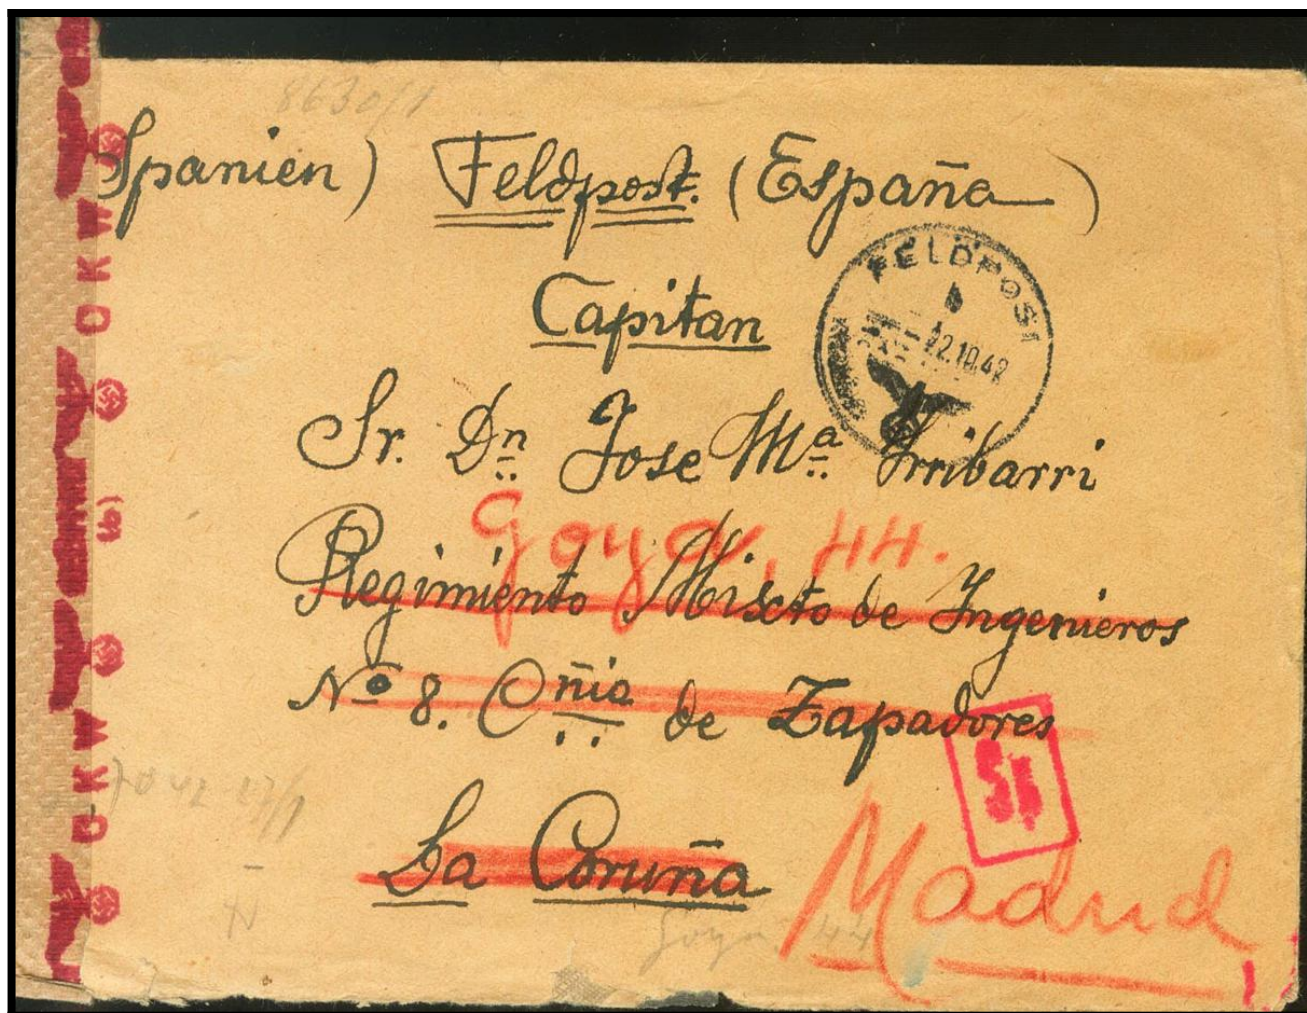 8630/1
Spanien) Feldpost. (España)
FELDPOST
b
22.10.42
Capitan
Sr. Dn Jose Mª Irribarri
Goya, 44.
Regimiento Mixto de Ingenieros
Nº 8. Cñia de Zapadores
La Coruña
Madrid
Goya 44
OKW
OKW
(b)